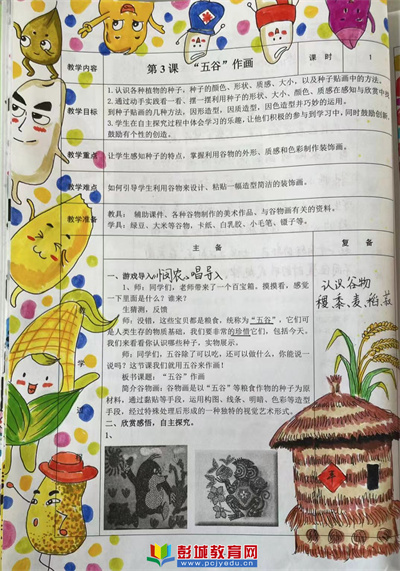 教学内容
第 3 课 “五谷”作画
课 时
1
教学目标
1.认识各种植物的种子，种子的颜色、形状、质感、大小，以及种子贴画中的方法。
2.通过动手实践看一看、摆一摆利用种子的形状、大小、颜色、质感在感知与欣赏中找
到种子贴画的几种方法，因形造型，因质造型，因色造型并巧妙的运用。
3.学生在自主探究过程中体会学习的乐趣，让他们积极的参与到学习中，同时鼓励创新，
鼓励有个性的创造。
教学重点
让学生感知种子的特点，掌握利用谷物的外形、质感和色彩制作装饰画。
教学难点
如何引导学生利用谷物来设计、粘贴一幅造型简洁的装饰画。
教学准备
教具： 辅助课件、各种谷物制作的美术作品、与谷物画有关的资料。
学具：绿豆、大米等谷物，卡纸、白乳胶、小毛笔、镊子等。
主 备
复 备
一、游戏导入 悯农 唱导入
1、师：同学们，老师带来了一个百宝箱。摸摸看，感觉
一下里面是什么？谁来？
生猜测，反馈
师：没错，这些宝贝都是粮食，统称为“五谷”，它们可
是人类生存的物质基础，我们要非常的珍惜它们，包括今天。
我们来看看你认识哪些种子，实物展示。
师：同学们，五谷除了可以吃，还可以做什么，你能说一
说吗？这节课我们就用五谷来作画！
板书课题：“五谷”作画
简介谷物画：谷物画是以“五谷”等粮食作物的种子为原
材料，通过黏贴等手段，运用构图、线条、明暗、色彩等造型
手段，经过特殊处理后形成的一种独特的视觉艺术形式。
二、欣赏感悟，自主探究。
1、
认识谷物
稷、黍、麦、稻、菽
教
学
过
丰
彭城教育网
www.pcjyedu.cn